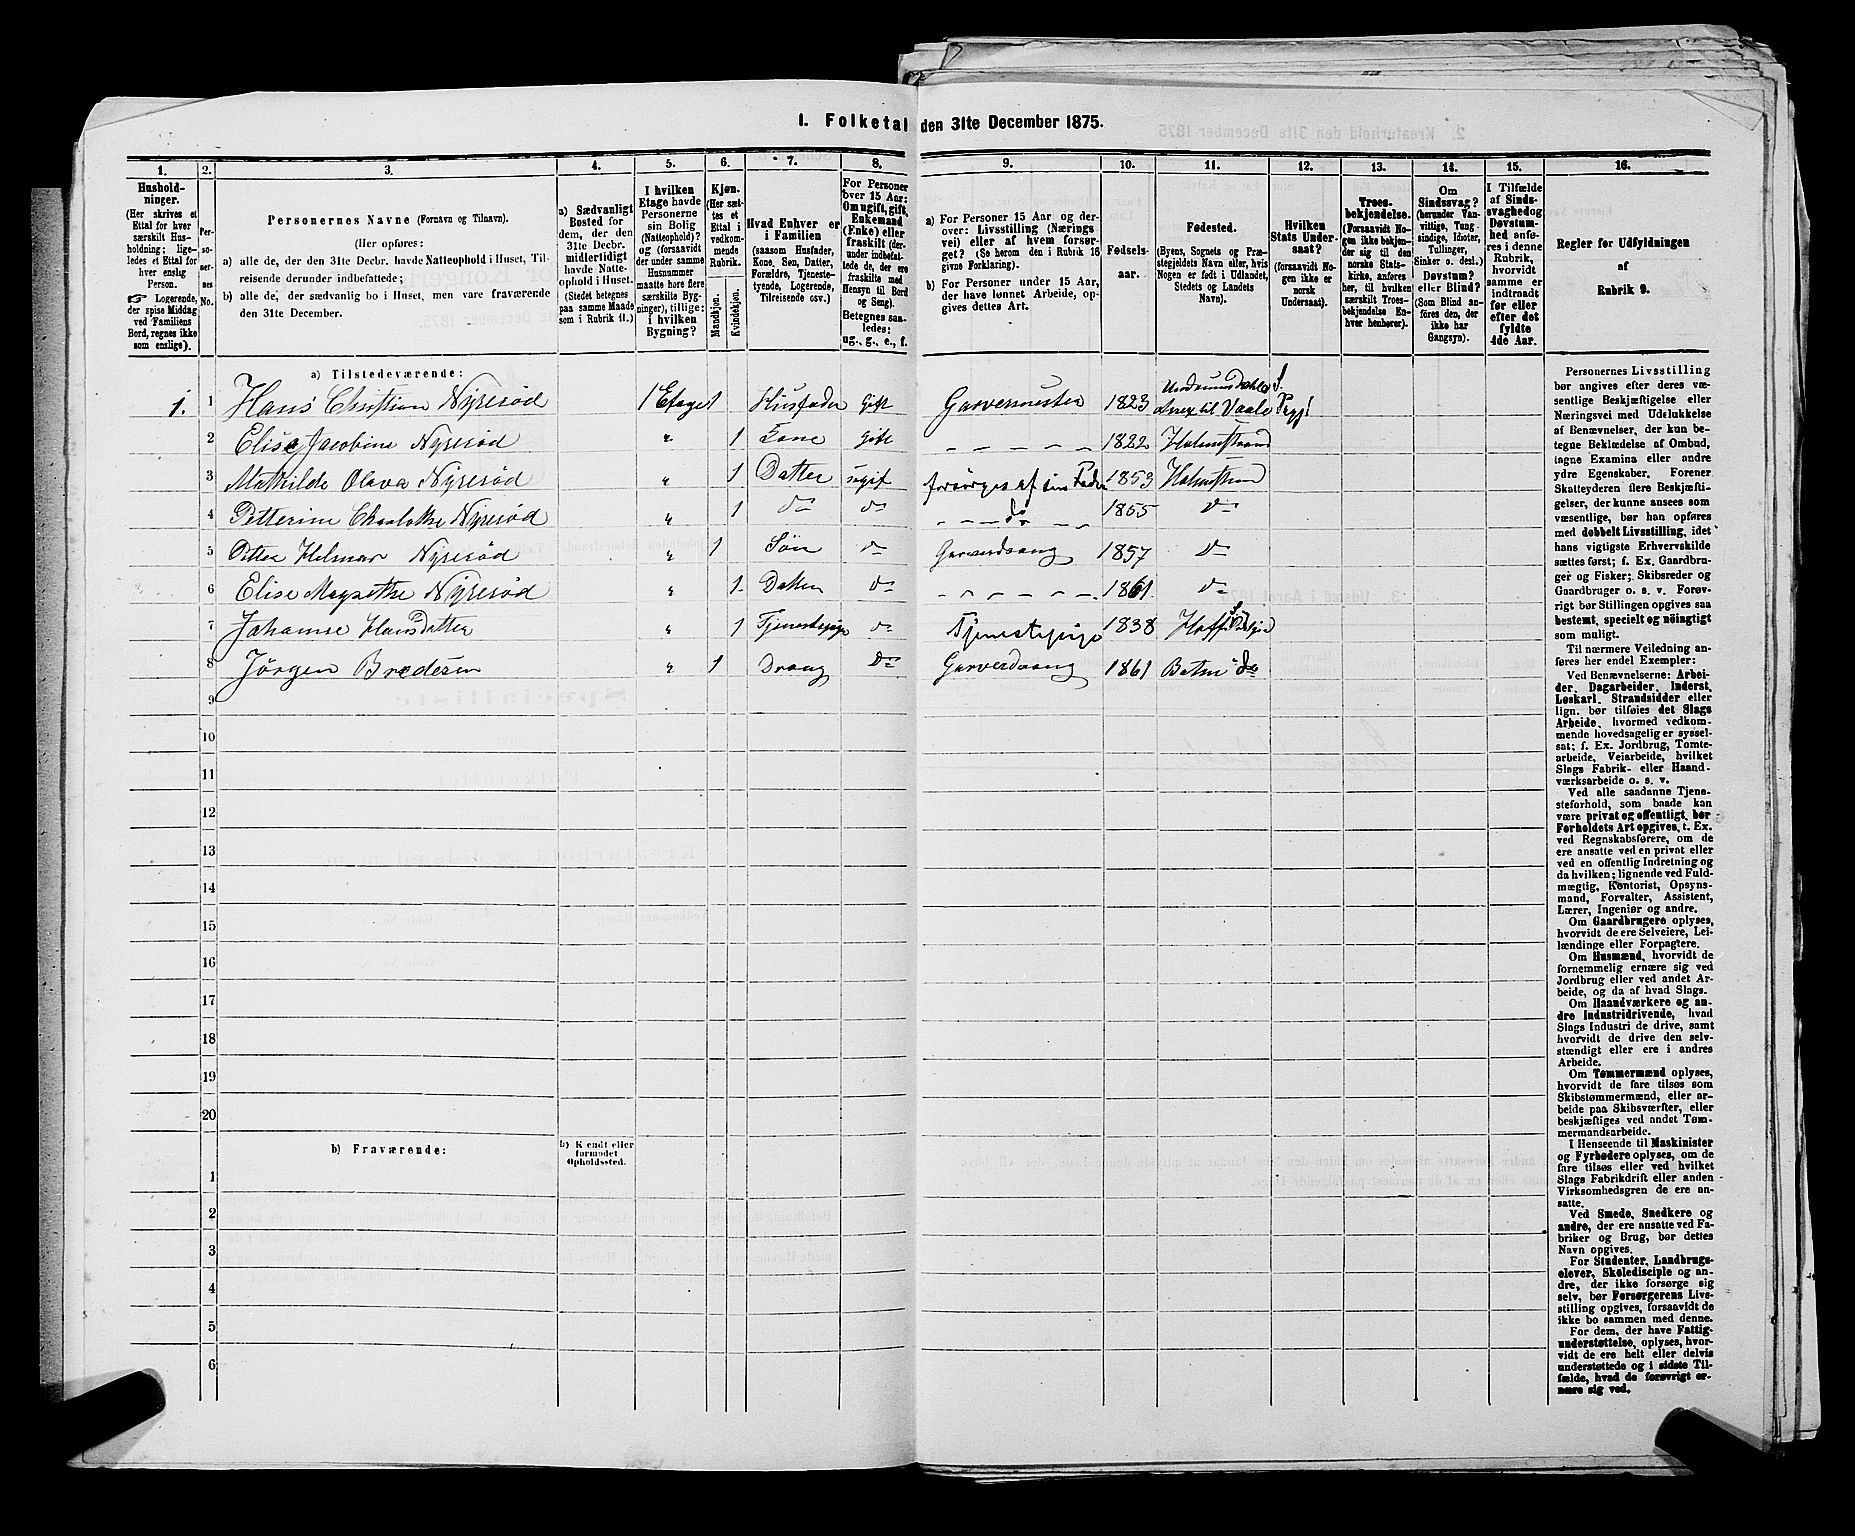 1. Folketal den 31te December 1875.
1. 2. 3. 4. 5. 6. 7. 8. 9. 10. 11. 12. 13. 14. 15. 16.
Hushold-
ninger.
(Her skrives et
Ettal for hver
særskilt Hus-
holdning; lige-
ledes et Ettal for
hver enslig
Person.
☞ Logerende,
der spise Middag
ved Familiens
Bord, regnes ikke
som enslige).
Personernes No.
Personernes Navne (Fornavn og Tilnavn).
(Her opføres:
a) alle de, der den 31te Decbr. havde Natteophold i Huset, Til-
reisende derunder indbefattede;
b) alle de, der sædvanlig bo i Huset, men vare fraværende
den 31te December.
a) Sædvanligt
Bosted for
dem, der den
31te Decbr.
midlertidigt
havde Natte-
ophold i Huset.
(Stedet betegnes
paa samme Maade
som i Rubrik 11.)
I hvilken
Etage havde
Personerne
sin Bolig
(Natteophold)?
og (forsaavidt
der under samme
Husnummer
maatte høre flere
særskilte Byg-
ninger), tillige:
i hvilken
Bygning?
Kjøn.
(Her sæt-
tes et
Ettal i
vedkom-
mende
Rubrik.
Mandkjøn.
Kvindekjøn.
Hvad Enhver er
i Familien
(saasom Husfader,
Kone, Søn, Datter,
Forældre, Tjeneste-
tyende, Logerende,
Tilreisende osv.)
For Personer
over 15 Aar:
Om ugift, gift,
Enkemand
(Enke) eller
fraskilt (der-
under indbefat-
tede de, der ere
fraskilte med
Hensyn til Bord
og Seng).
Betegnes saa-
ledes:
ug., g., e., f.
a) For Personer 15 Aar og der-
over: Livsstilling (Nærings-
vei) eller af hvem forsør-
get? (Se herom den i Rubrik 16
givne Forklaring).
b) For Personer under 15 Aar,
der have lønnet Arbeide, op-
gives dettes Art.
Fødsels-
aar.
Fødested.
(Byens, Sognets og Præ-
stegjeldets Navn eller, hvis
Nogen er født i Udlandet,
Stedets og Landets
Navn).
Hvilken
Stats Under-
saat?
(forsaavidt No-
gen ikke er
norsk
Undersaat).
Troes-
bekjendelse.
(Forsaavidt No-
gen ikke bekjen-
der sig til den
norske Stats-
kirke, anføres
her, til hvilken
særskilt Troes-
bekjendelse En-
hver henhører).
Om
Sindssvag?
(herunder Van-
vittige, Tung-
sindige, Idioter,
Tullinger,
Sinker o. desl.)
Døvstum?
eller Blind?
(Som Blind an-
føres den, der
ikke har
Gangsyn).
I Tilfælde
af Sinds-
svaghed og
Døvstum-
hed anfø-
res i denne
Rubrik,
hvorvidt
samme er
indtraadt
før eller
efter det
fyldte
4de Aar.
Regler for Udfyldningen
af
Rubrik 9.
a) Tilstedeværende:
1. 1 Hans Christian Nyresød 1 Etage 1 Husfader gift Garvermester 1823 Annex til Vaale
2 Elise Jacobine Nyresød " 1 Kone gift 1822 Holmestrand
3 Mathilde Olava Nyresød " 1 Datter ugift forsørges af sin Fader 1853 Holmestrand
4 Petterine Charlotte Nyresød " 1 do do do 1855 do
5 Otto Helmar Nyresød " 1 Søn do Garverdreng 1857 do
6 Elise Magrethe Nyresød " 1 Datter do 1861 do
7 Johanne Hansdatter " 1 Tjenestepige do Tjenestepige 1838 Hoff
8 Jørgen Bredesen " 1 Dreng do Garverdreng 1861 Botne do
9
10
11
12
13
14
15
16
17
18
19
20
b) Fraværende:
b) Kjendt eller
formodet
Opholdssted.
1
2
3
4
5
6
Personernes Livsstilling
bør angives efter deres væ-
sentlige Beskjæftigelse eller
Næringsvei med Udelukkelse
af Benævnelser, der kun be-
tegne Beklædelse af Ombud,
tagne Examina eller andre
ydre Egenskaber. Forener
Skatteyderen flere Beskjæfti-
gelser, der kunne ansees som
væsentlige, bør han opføres
med dobbelt Livsstilling, idet
hans vigtigste Erhvervskilde
sættes først; f. Ex. Gaardbru-
ger og Fisker; Skibsreder og
Gaardbruger o. s. v. Forøv-
rigt bør Stillingen opgives saa
bestemt, specielt og nöiagtigt
som muligt.
Til nærmere Veiledning an-
føres her endel Exempler:
Ved Benævnelserne: Arbei-
der, Dagarbeider, Inderst,
Løskarl, Strandsidder eller
lign. bør tilføies det Slags
Arbeide, hvormed vedkom-
mende hovedsagelig er syssel-
sat; f. Ex. Jordbrug, Tomte-
arbeide, Veiarbeide, hvilket
Slags Fabrik- eller Haand-
værksarbeide o. s. v.
Ved alle saadanne Tjene-
steforhold, som baade kan
være privat og offentligt, bør
Forholdets Art opgives, t. Ex.
ved Regnskabsførere, om de
ere ansatte ved en privat eller
ved en offentlig Indretning og
da hvilken; lignende ved Fuld-
mægtig, Kontorist, Opsyns-
mand, Forvalter, Assistent,
Lærer, Ingeniør og andre.
Om Gaardbrugere oplyses,
hvorvidt de ere Selveiere, Lei-
lændinge eller Forpagtere.
Om Husmænd, hvorvidt de
fornemmelig ernære sig ved
Jordbrug eller ved andet Ar-
beide, og da af hvad Slags.
Om Haandværkere og an-
dre Industridrivende, hvad
Slags Industri de drive, samt
hvorvidt de drive den selv-
stændigt eller ere i andres
Arbeide.
Om Tømmermænd oplyses,
hvorvidt de fare tilsøs som
Skibstømmermænd, eller ar-
beide paa Skibsværfter, eller
beskjæftiges ved andet Tøm-
mermandsarbeide.
I Henseende til Maskinister
og Fyrbødere oplyses, om de
fare tilsøs eller ved hvilket
Slags Fabrikdrift eller anden
Virksomhedsgren de ere an-
satte.
Ved Smede, Snedkere og
andre, der ere ansatte ved Fa-
briker og Brug, bør dettes
Navn opgives.
For Studenter, Landbrugs-
elever, Skoledisciple og an-
dre, der ikke forsørge sig
selv, bør Forsørgerens Livs-
stilling opgives, forsaavidt de
ikke bo sammen med denne.
For dem, der have Fattig-
understøttelse, oplyses, hvor-
vidt de ere helt eller delvis
understøttede og i sidste Til-
fælde, hvad de forøvrigt er-
nære sig ved.